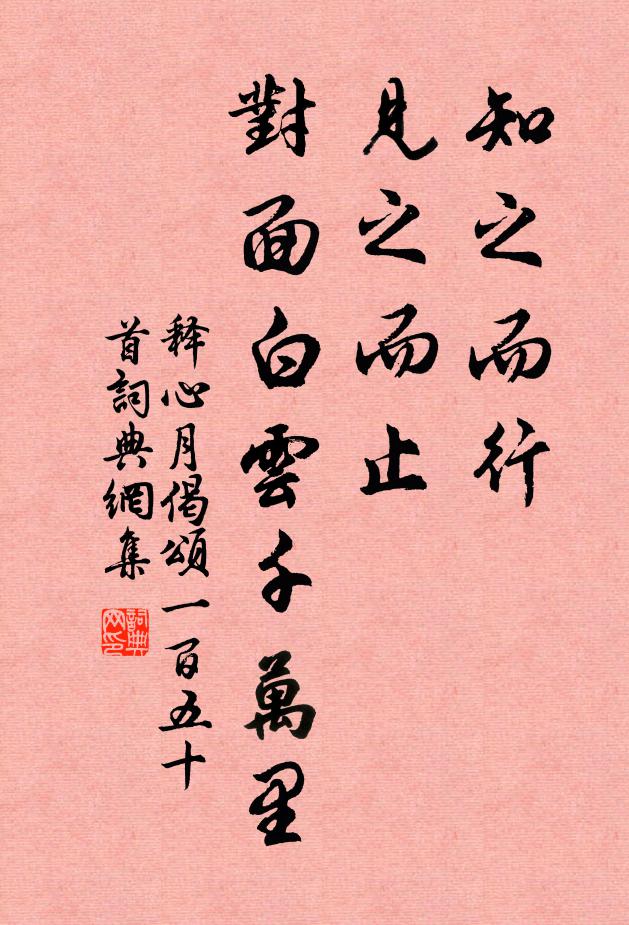 知之而行
見之而止
對面白雲千萬里
释心月偈頌一百五十
首詞典網集
詞典网印